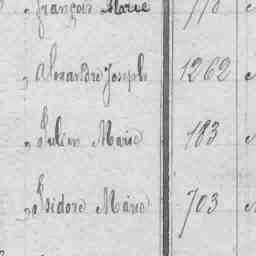 „ françois Marie 778
„ Alexandre Joseph 1262
„ Julien Marie 183
„ Isidore Marie 703